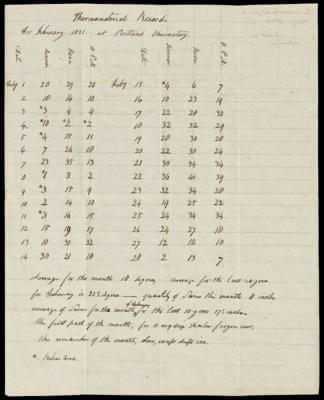 Thermometrical Record
for February, 1835. at Portland Observatory.
Date. Sunrise Noon 9 P.M. Date. Sunrise Noon 9 P.M.
Feby 1 20 29 20 Feby 15 *4 6 7
2 10 16 10 16 10 23 19
3 *3 4 4 17 22 28 30
4 *10 *2 *2 18 32 32 29
5 *4 15 11 19 28 30 28
6 7 26 18 20 22 30 24
7 23 35 13 21 30 34 34
8 *1 8 2 22 36 41 39
9 *3 15 9 23 32 34 28
10 2 14 10 24 19 25 22
11 *3 16 15 25 24 34 34
12 15 19 17 26 24 27
13 10 31 32 27 12 12 10
14 30 21 10 28 2 13 7
Average for the month 18 degrees, average for the last 10 years
for February is 21½ degrees — quantity of Snow this month 8 inches
average of Snow for the month of February for the last 10 years 17½ inches
The first part of the month, the harbor frozen over,
the remainder of the month, clear, except drift ice.
* below zero.